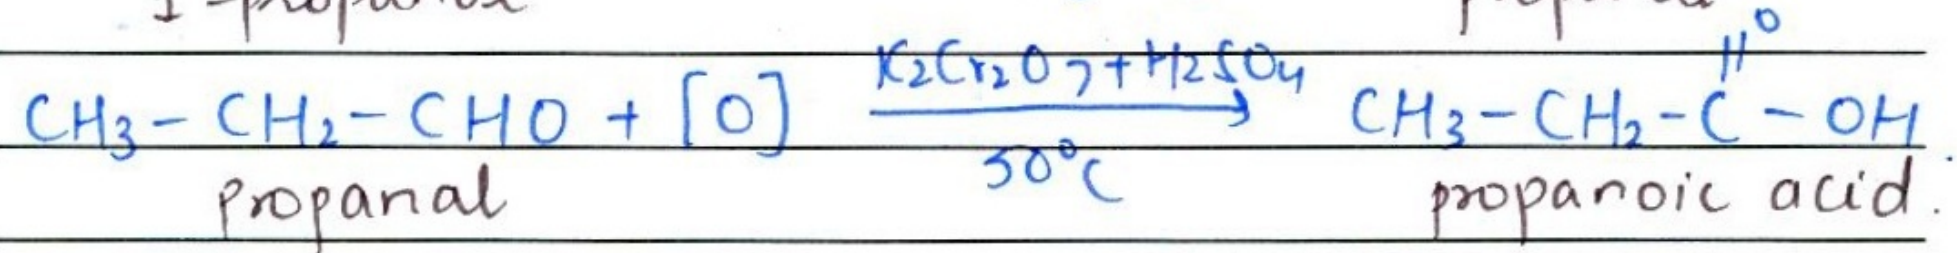 CH3 - CH2 - CHO + [O] K2Cr2O7 + H2SO4 50°C CH3 - CH2 - C - OH
O
propanal propanoic acid.